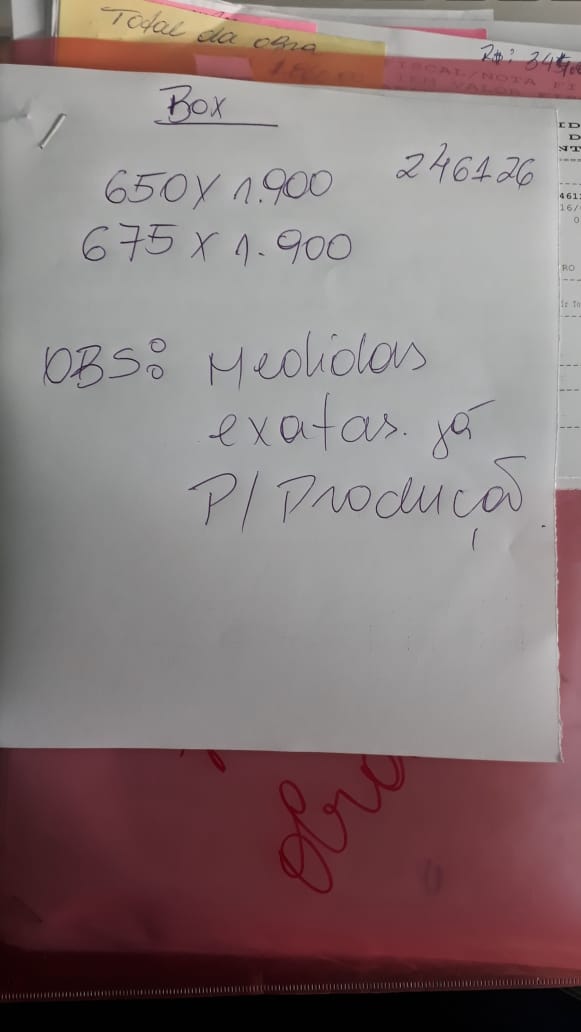 Total da obra
R$:
ISCAL/NOTA FI
Box
650 X 1.900 246126
675 X 1.900
OBS: Medidas
exatas. já
P/ Produção.
obra